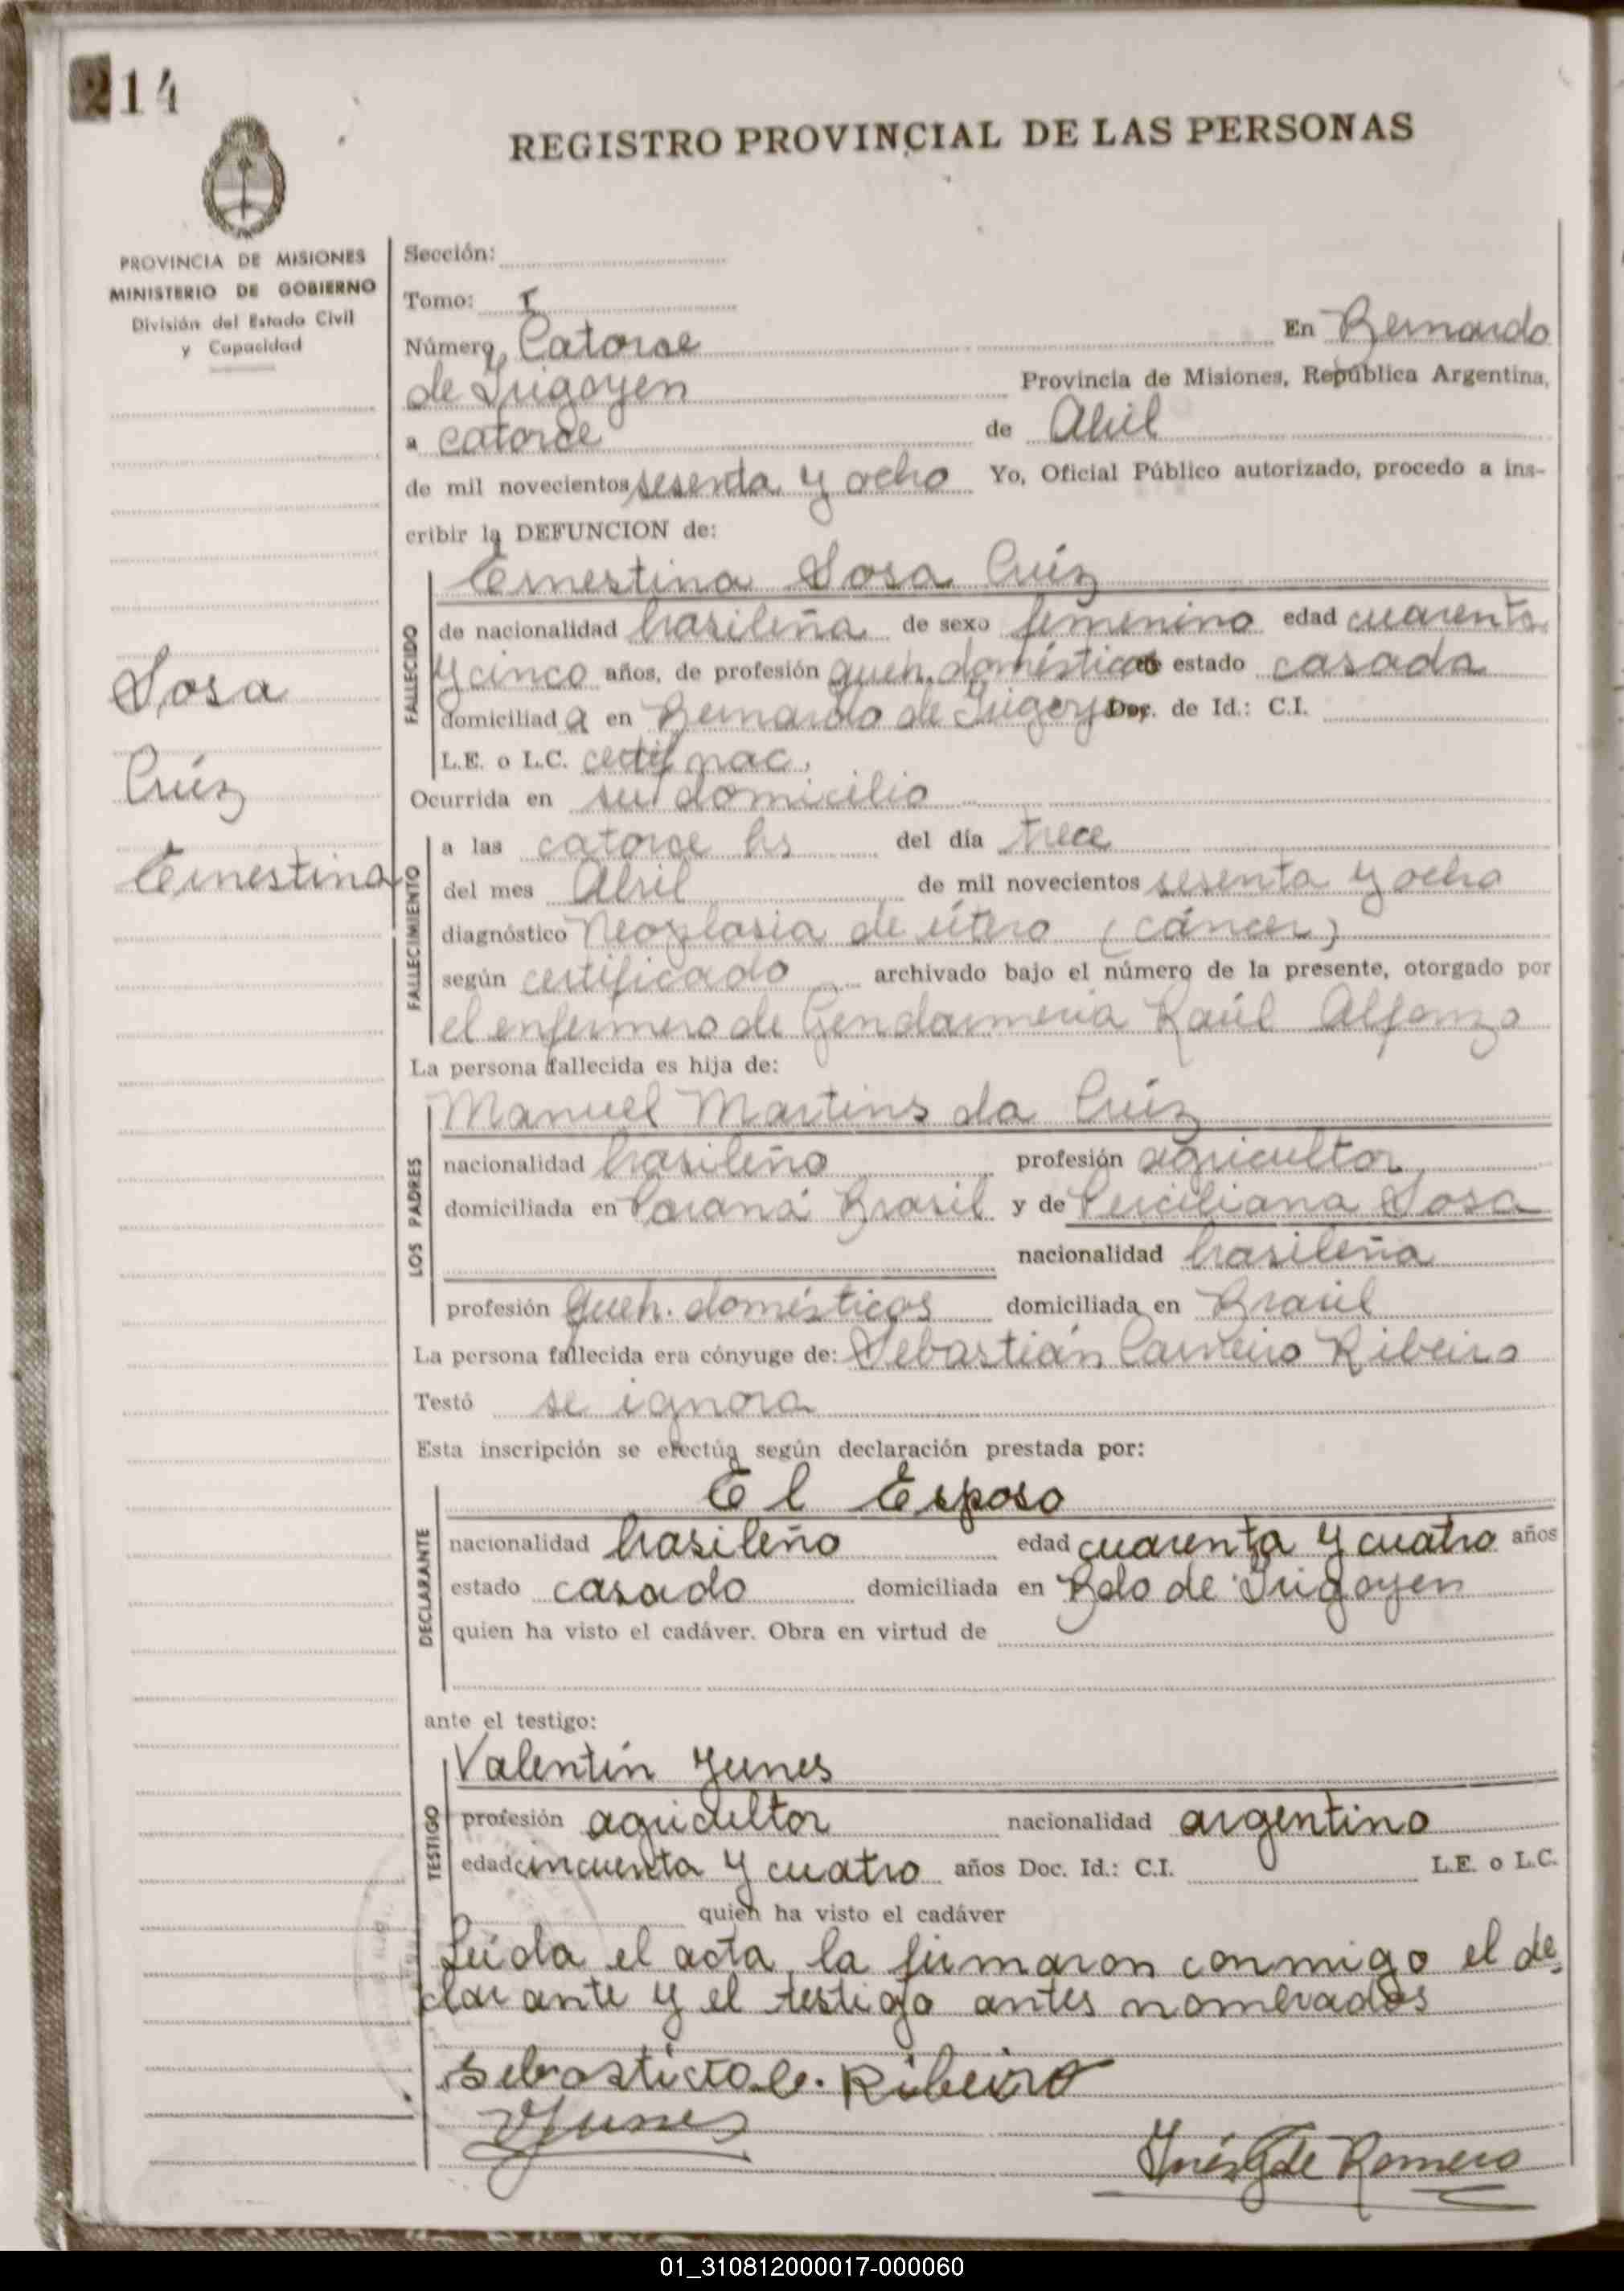 214
REGISTRO PROVINCIAL DE LAS PERSONAS
PROVINCIA DE MISIONES
MINISTERIO DE GOBIERNO
División del Estado Civil
y Capacidad
Sección:
Tomo: I
Número, Catorce En Bernardo
de Irigoyen Provincia de Misiones, República Argentina,
a catorce de Abril
de mil novecientos sesenta y ocho Yo, Oficial Público autorizado, procedo a ins-
cribir la DEFUNCION de:
Ernestina Sosa Crúz
FALLECIDO
de nacionalidad brasileña de sexo femenino edad cuarenta
y cinco años, de profesión queh. domésticos estado casada
domiciliada en Bernardo de Irigoyen Doc. de Id.: C.I.
L.E. o L.C. certif nac.
Sosa
Crúz
Ernestina
Ocurrida en su domicilio
FALLECIMIENTO
a las catorce hs del día trece
del mes Abril de mil novecientos sesenta y ocho
diagnóstico Neoplasia de útero (cáncer)
según certificado archivado bajo el número de la presente, otorgado por
el enfermero de Gendarmeria Raúl Alfonzo
La persona fallecida es hija de:
LOS PADRES
Manuel Martins da Crúz
nacionalidad brasileño profesión agricultor
domiciliada en Paraná Brasil y de Perciliana Sosa
nacionalidad brasileña
profesión queh. domésticos domiciliada en Brasil
La persona fallecida era cónyuge de: Sebastián Carneiro Ribeiro
Testó se ignora
Esta inscripción se efectúa según declaración prestada por:
DECLARANTE
El Esposo
nacionalidad brasileño edad cuarenta y cuatro años
estado casado domiciliada en Bdo de Irigoyen
quien ha visto el cadáver. Obra en virtud de
ante el testigo:
TESTIGO
Valentín Yunes
profesión agricultor nacionalidad argentino
edad cincuenta y cuatro años Doc. Id.: C.I. L.E. o L.C.
quien ha visto el cadáver
Leída el acta la firmaron conmigo el de
clarante y el testigo antes nombrados
Ribeiro
Yunes
Inés G de Romero
01_310812000017-000060